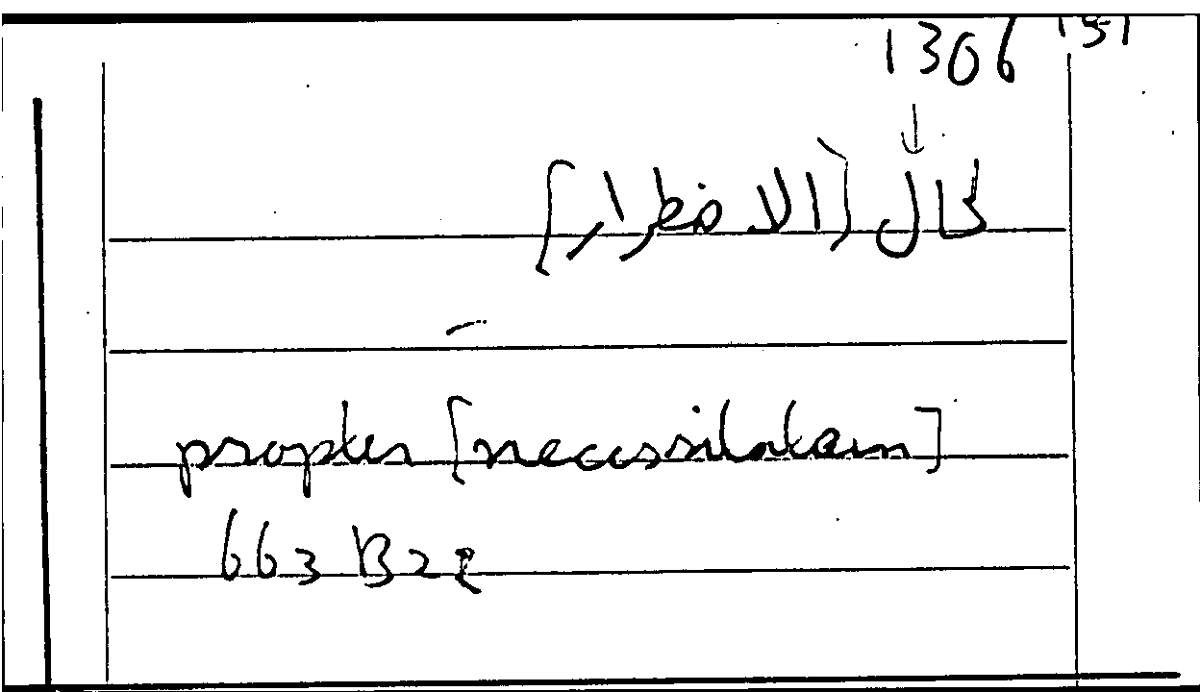 1306
لحال [الاضطرار]
propter [necessitatem]
663 B22